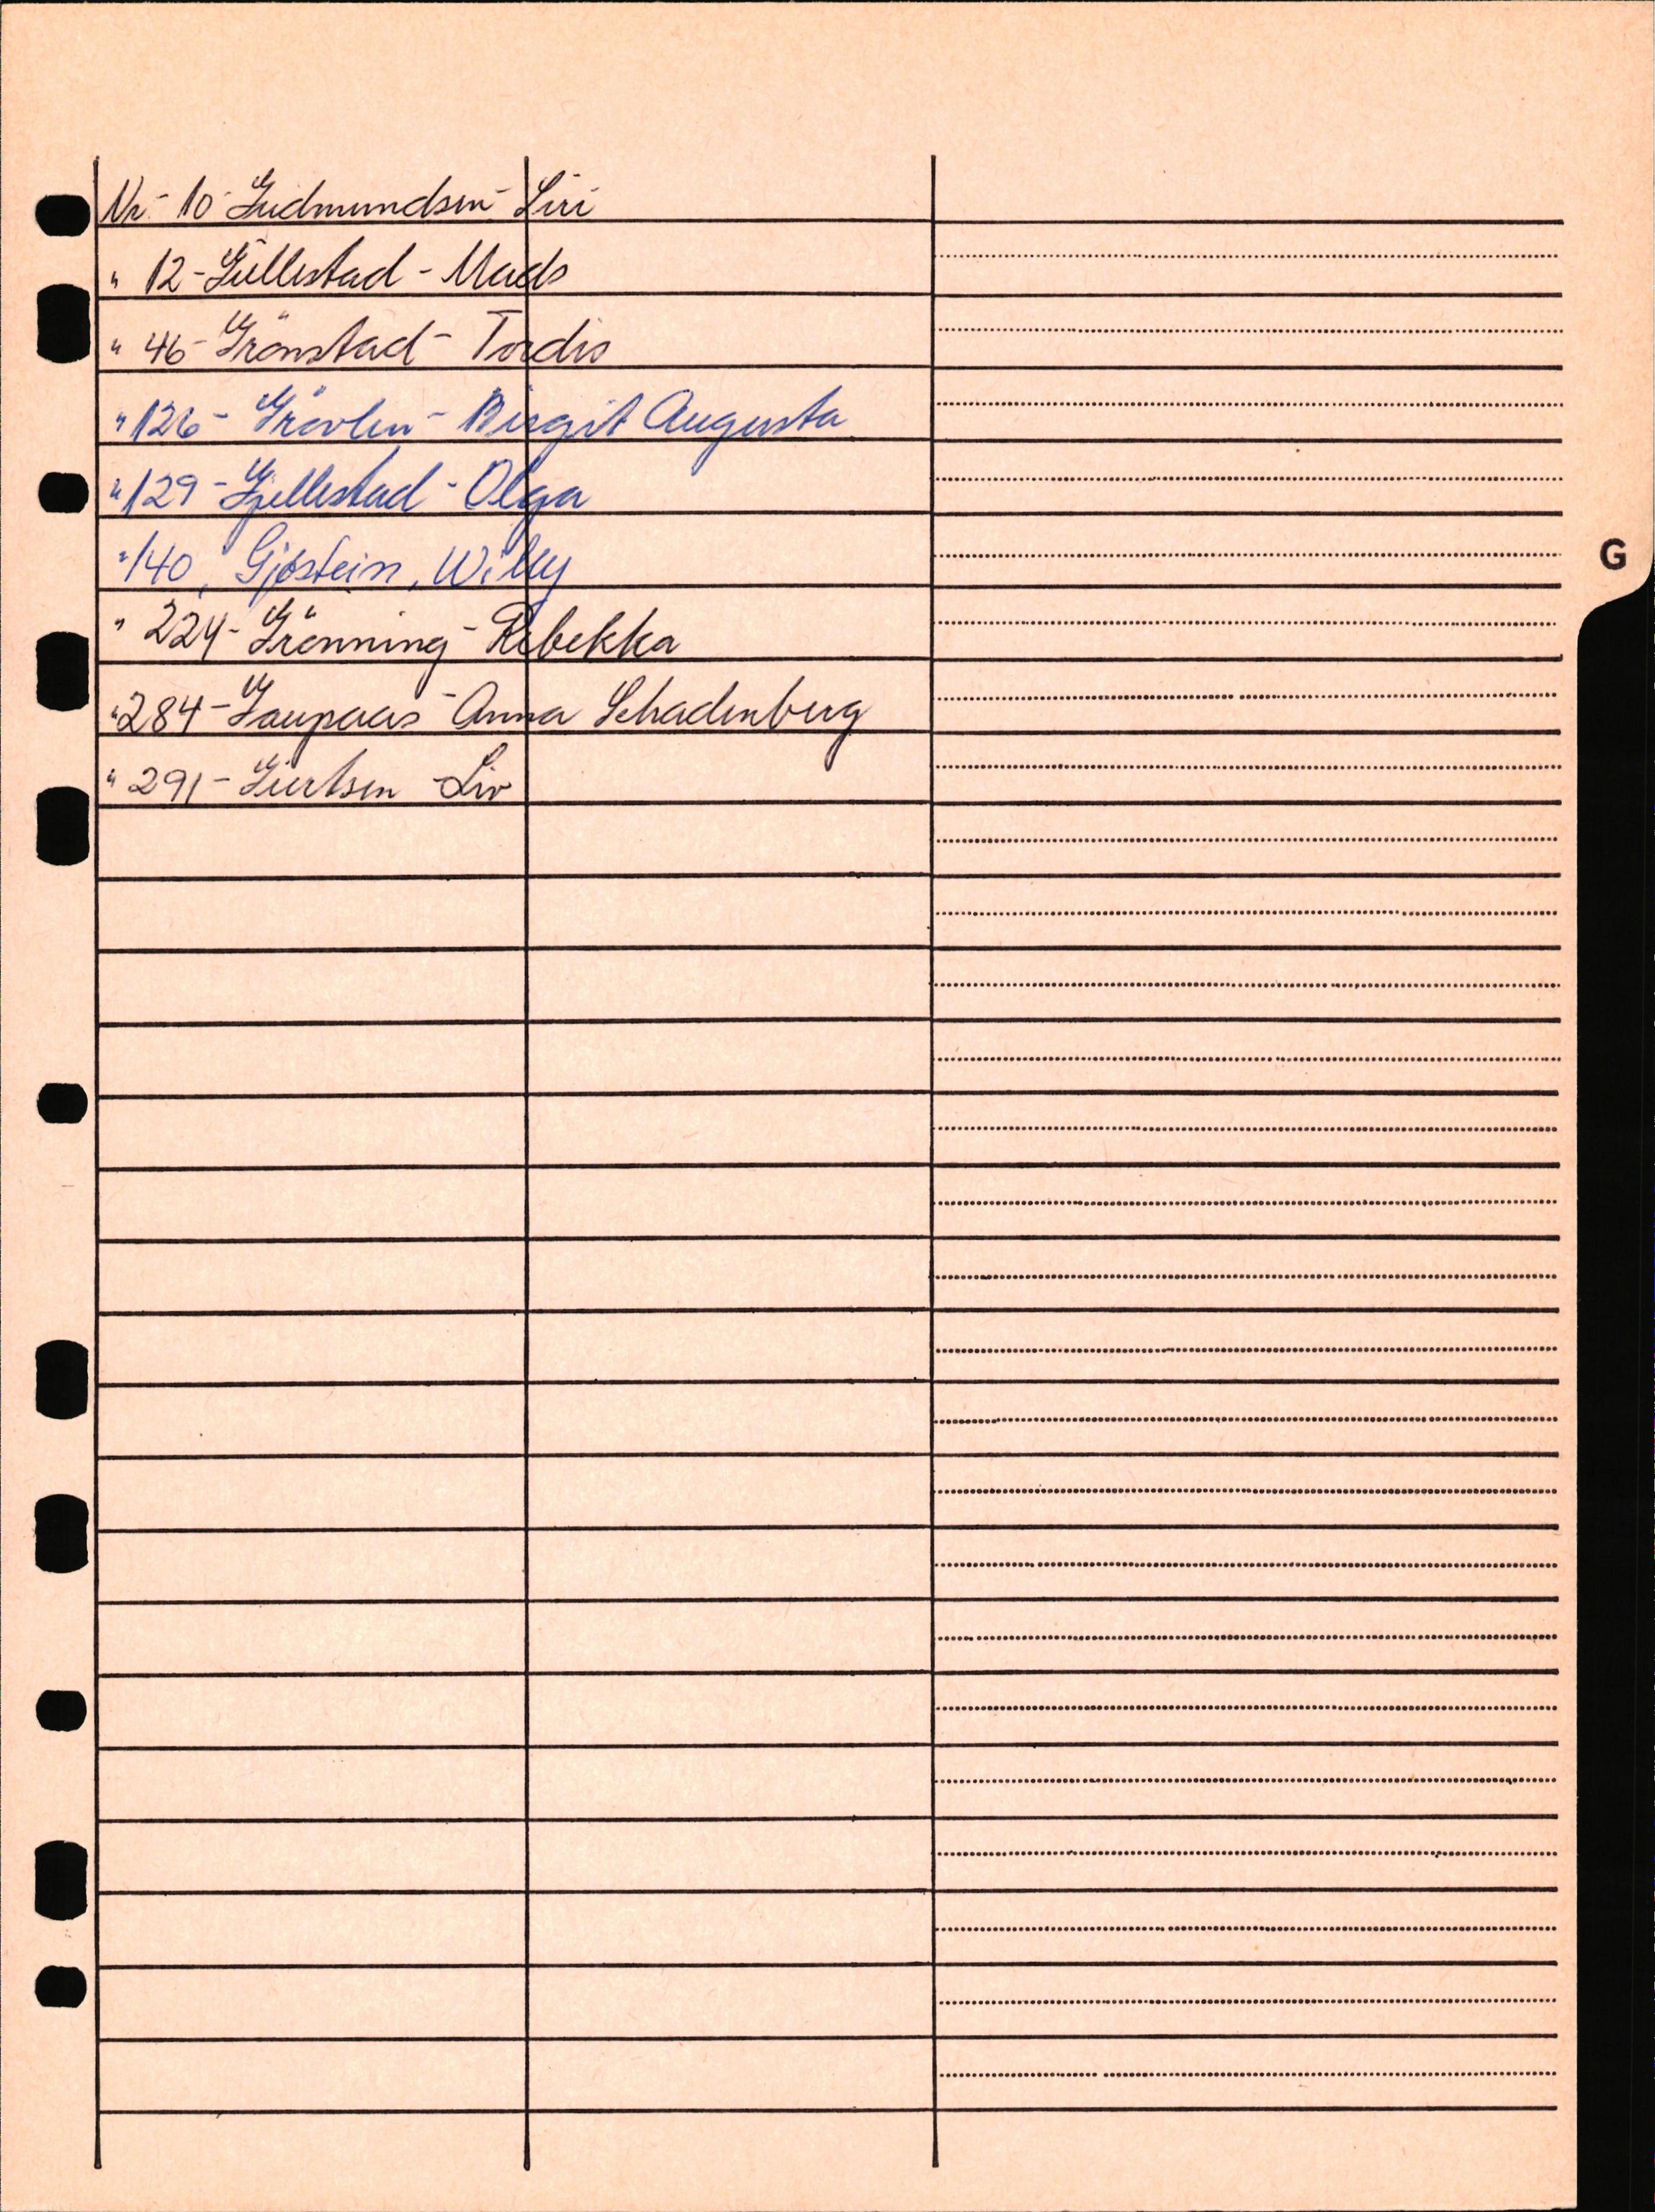 Nr- 10 Gudmundsen- Siri
" 12- Gullestad - Mads
" 46- Grönstad - Tordis
" 126 - Grövlen - Birgit Augusta
" 129 - Gjellestad - Olga
" 140, Gjøstein, Willy
" 224 - Grönning - Rebekka
" 284 - Gaupaas - Anna Schadenberg
" 291 - Giertsen - Liv
G